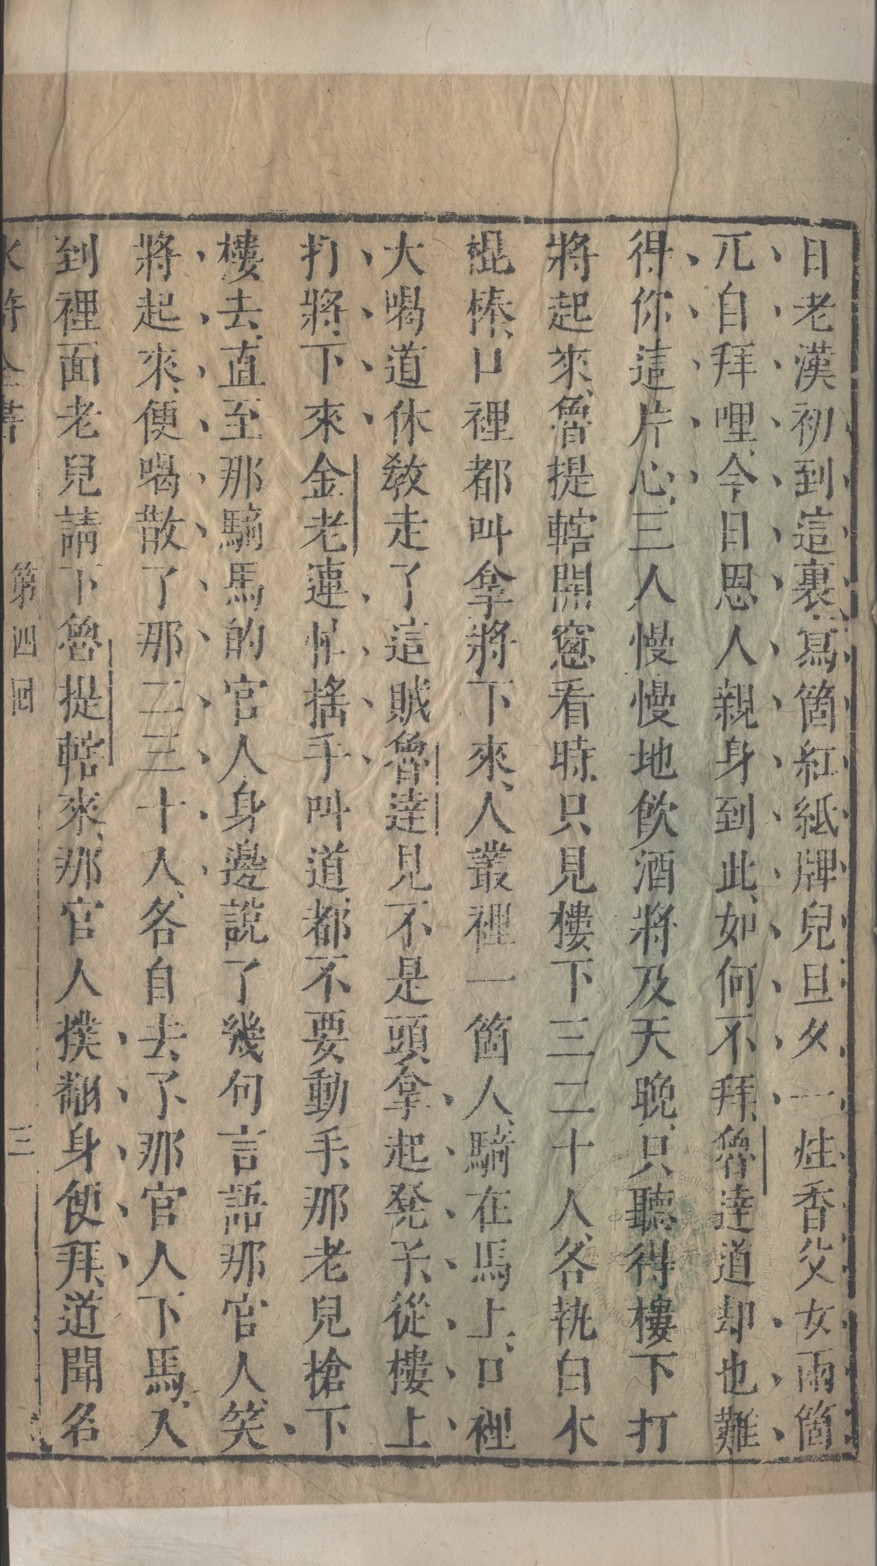 日老漢初到這裏寫箇紅紙牌兒旦夕一炷香父女兩箇
兀自拜哩今日恩人親身到此如何不拜魯達道却也難
得你這片心三人慢慢地飲酒將及天晚只聽得樓下打
將起來魯提轄開窻看時只見樓下三二十人各執白木
棍棒口裡都叫拿將下來人叢裡一箇人騎在馬上口裡
大喝道休教走了這賊魯達見不是頭拿起凳子從樓上
打將下來金老連忙搖手叫道都不要動手那老兒搶下
樓去直至那騎馬的官人身邊說了幾句言語那官人笑
將起來便喝散了那二三十人各自去了那官人下馬入
到裡面老兒請下魯提轄來那官人撲翻身便拜道聞名
水滸全書 第四回 三